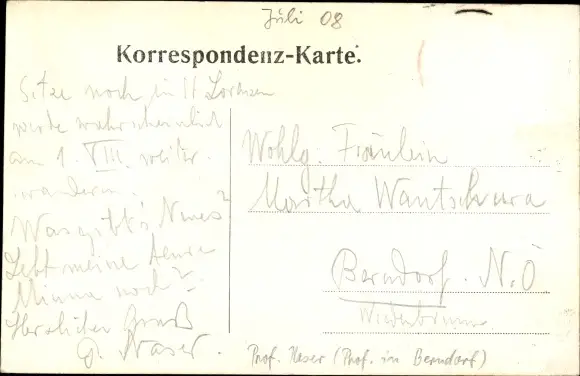 Juli 08
Korrespondenz-Karte.
Sitze noch in St Lorenzen
werde wahrscheinlich
am 1. VIII. weiter
wandern.
Was gibt's Neues?
Lebt meine teure
Minna noch?
Herzlichen Gruß
Naser.
Wohlg. Fräulein
Martha Wantschura
Berndorf. N.Ö
Prof. Naser (Prof. in Berndorf)